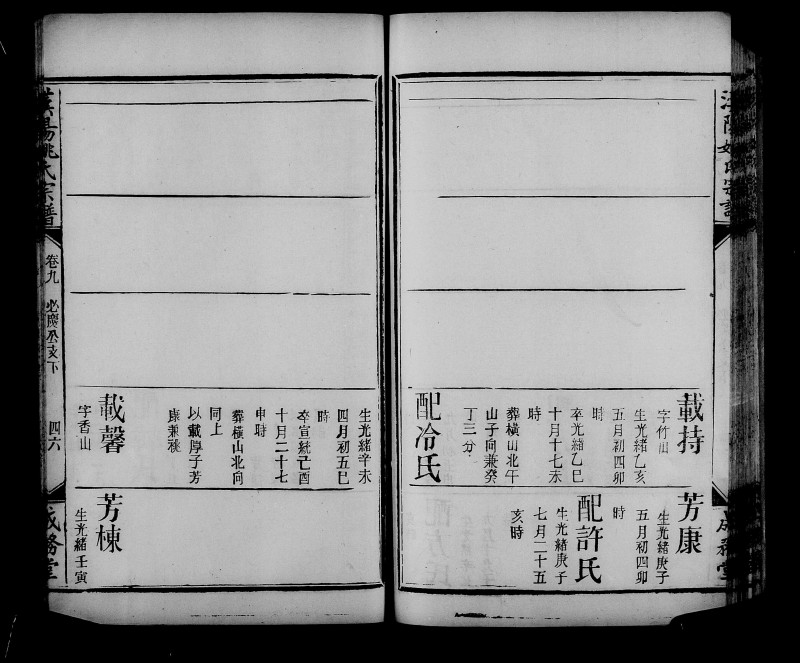 載持
字竹山
生光緒乙亥
五月初四卯
時
卒光緒乙巳
十月十七未
時
葬橫山北午
山子向兼癸
丁三分
配冷氏
芳康
生光緒庚子
五月初四卯
時
配許氏
生光緒庚子
七月二十五
亥時
生光緒辛未
四月初五巳
時
卒宣統己酉
十月二十七
申時
葬橫山北向
同上
以載厚子芳
康兼祧
載馨
字香山
芳棟
生光緒壬寅
漢陽姚氏宗譜
卷九
四六
成務堂